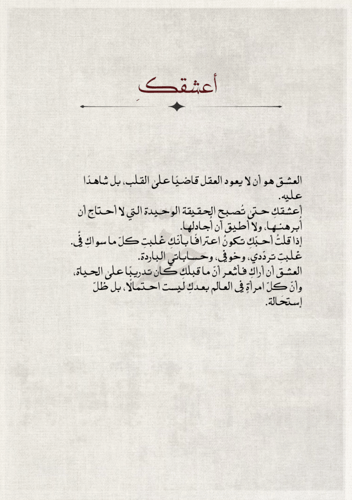 أعشقكِ
العشق هو أن لا يعود العقل قاضيًا على القلب، بل شاهدًا
عليه.
أعشقك حتى تُصبح الحقيقة الوحيدة التي لا أحتاج أن
أبرهنها، ولا أطيق أن أجادلها.
إذا قلتُ أحبّك تكونُ اعترافًا بأنّكِ غلبتِ كلّ ما سواكِ فيّ.
غلبتِ تردّدي، وخوفي، وحساباتي الباردة.
العشق أن أراكِ فأشعر أنّ ما قبلكِ كان تدريبًا على الحياة،
وأنّ كلّ امرأةٍ في العالم بعدكِ ليست احتمالًا، بل ظلّ
إستحالة.